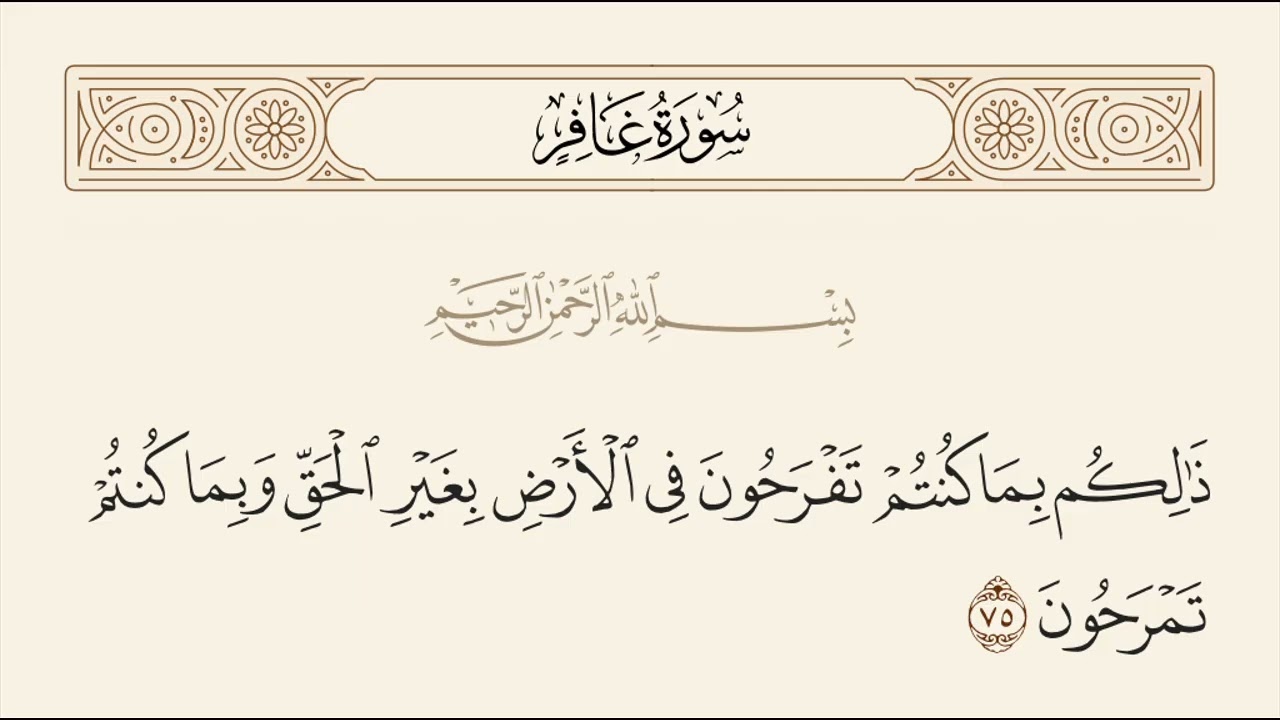 سُورَةُ غَافِرٍ
بِسْمِ ٱللَّهِ ٱلرَّحْمَٰنِ ٱلرَّحِيمِ
ذَٰلِكُم بِمَا كُنتُمْ تَفْرَحُونَ فِى ٱلْأَرْضِ بِغَيْرِ ٱلْحَقِّ وَبِمَا كُنتُمْ
تَمْرَحُونَ ٧٥